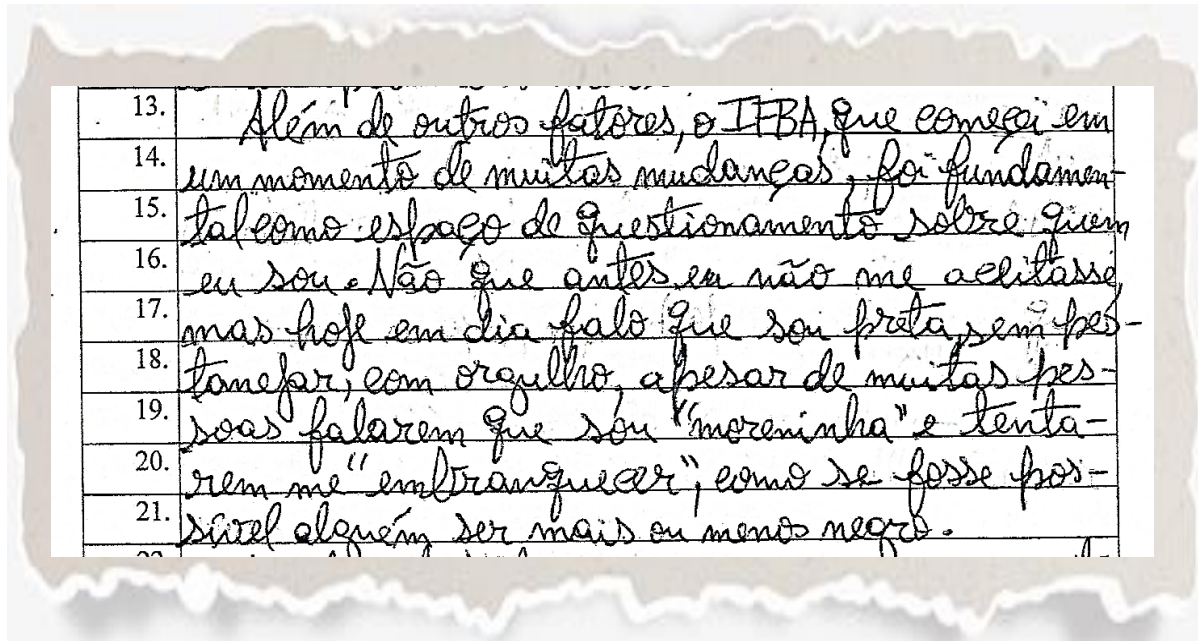 13. Além de outros fatores, o IFBA, que começei em
14. um momento de muitas mudanças, foi fundamen-
15. tal como espaço de questionamento sobre quem
16. eu sou. Não que antes eu não me aceitasse,
17. mas hoje em dia falo que sou preta, sem pes-
18. tanejar, com orgulho, apesar de muitas pes-
19. soas falarem que sou "moreninha" e tenta-
20. rem me "embranquecer", como se fosse pos-
21. sível alguém ser mais ou menos negro.